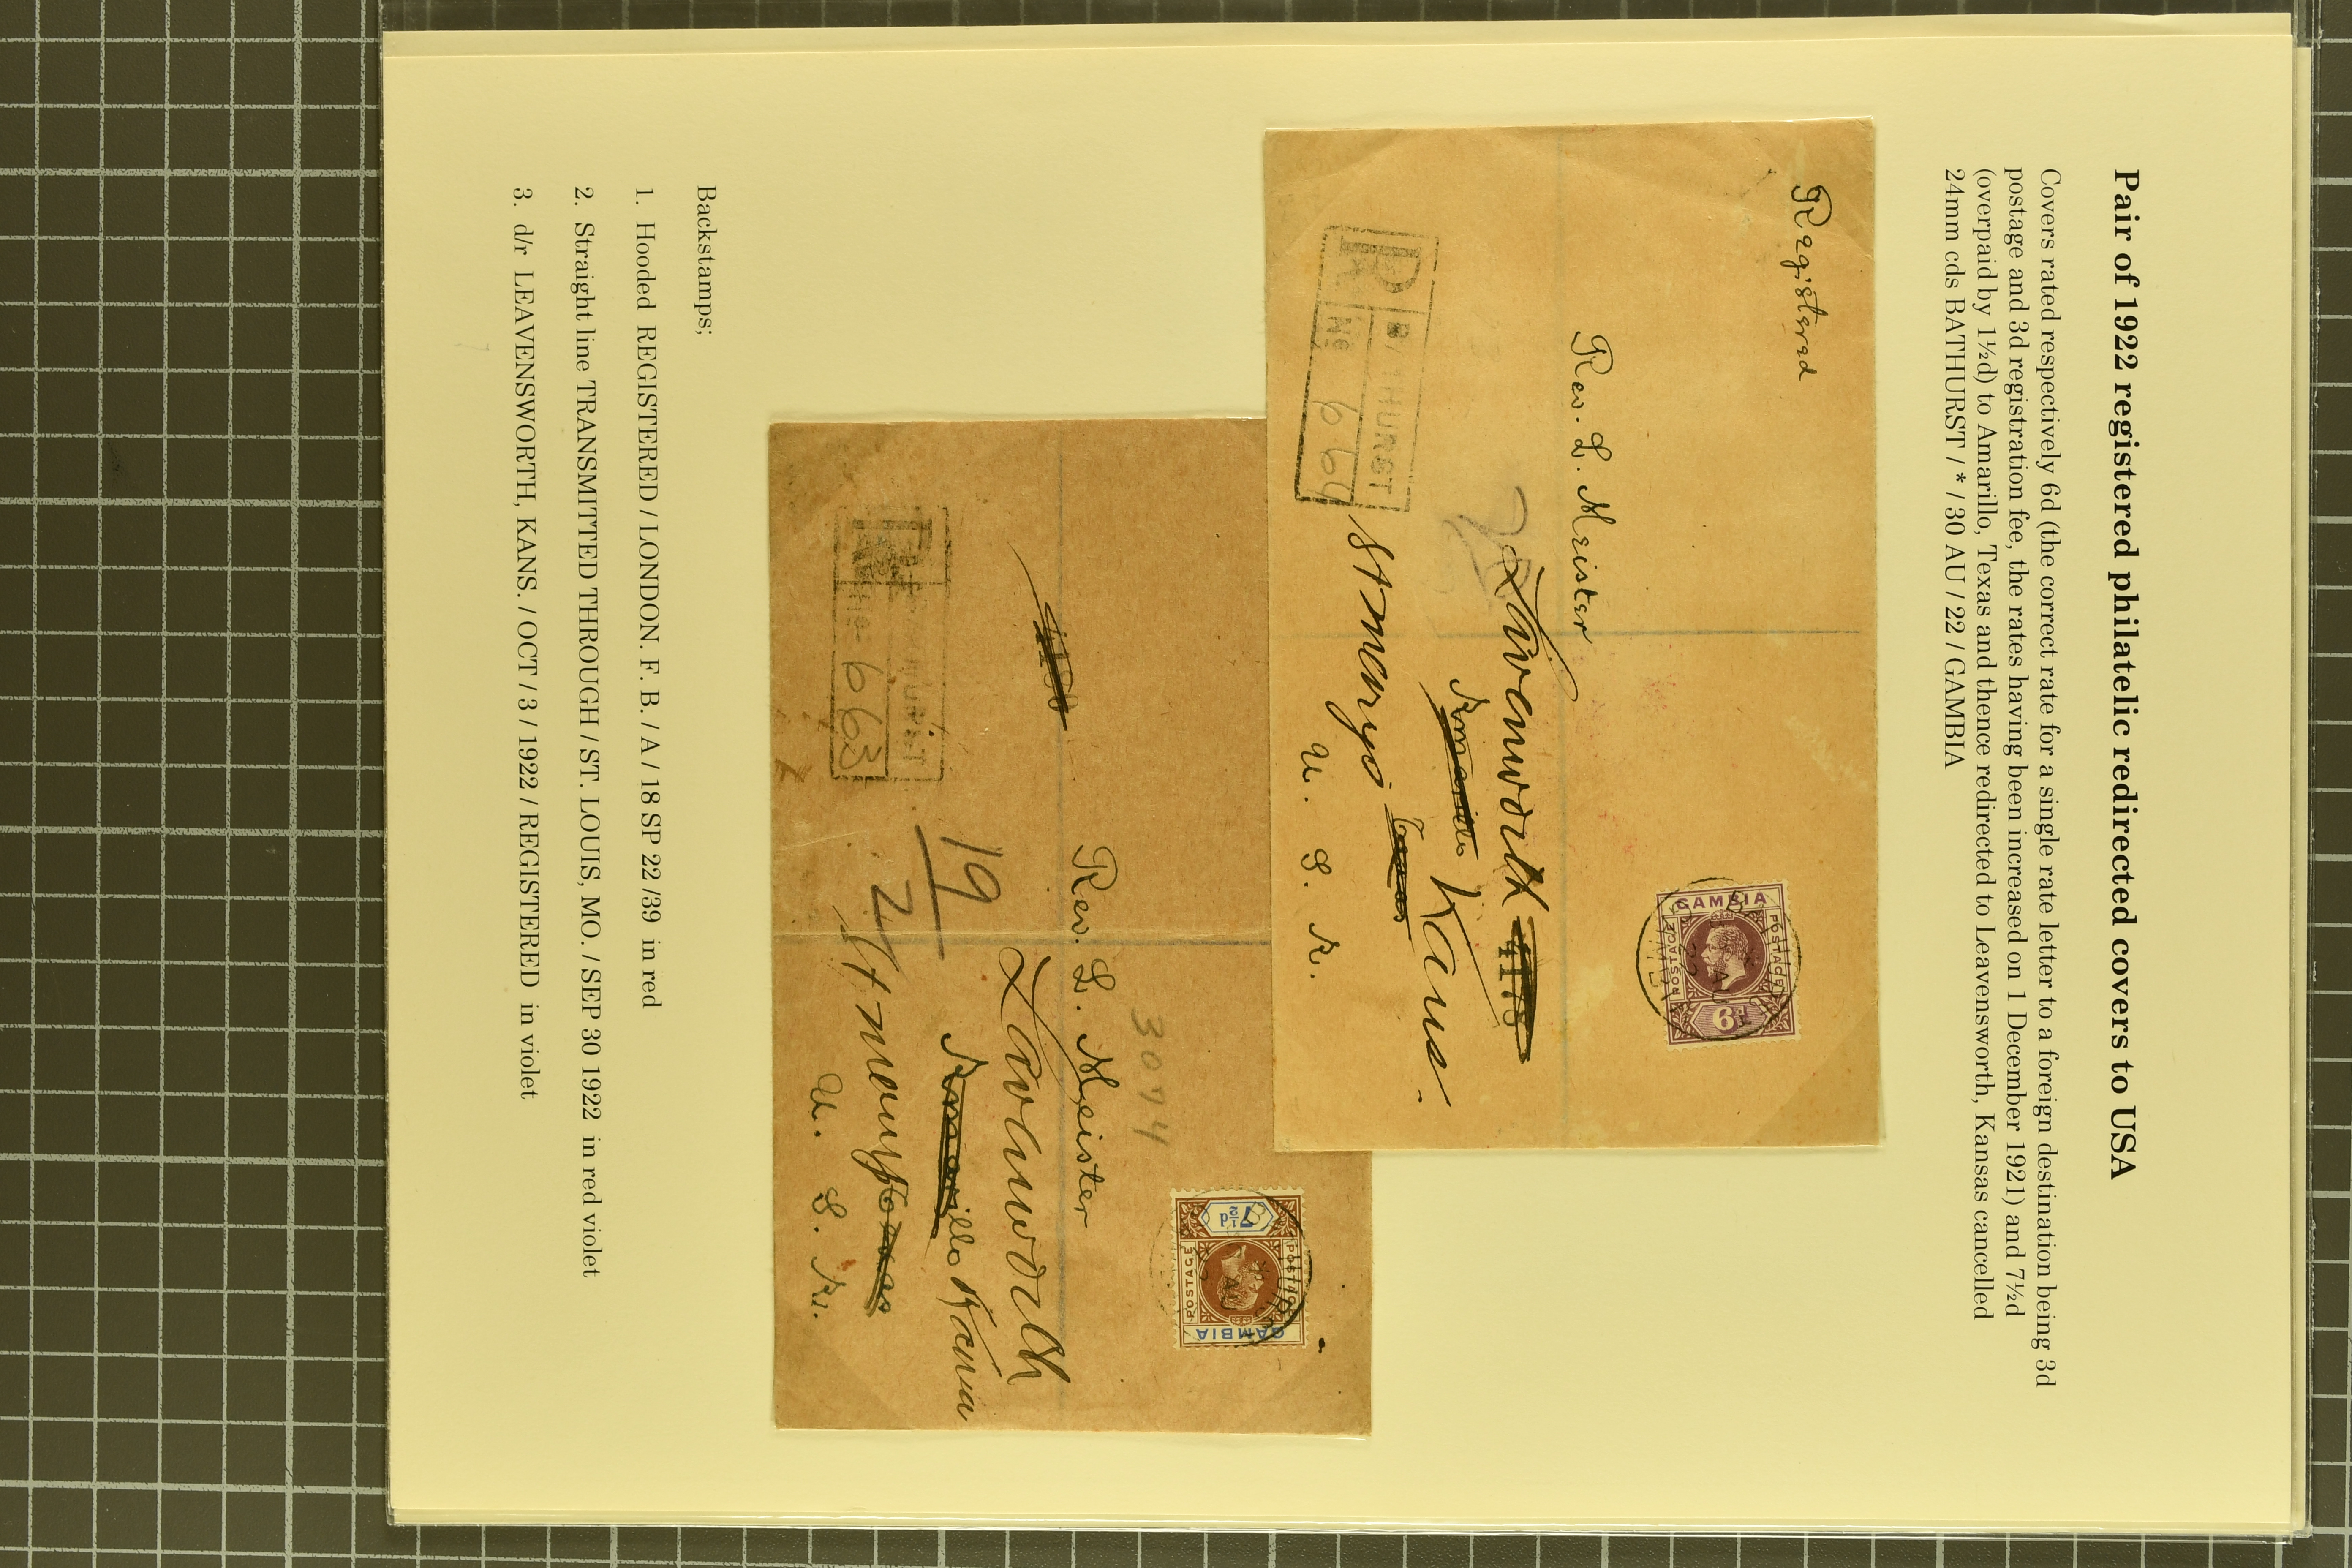 Pair of 1922 registered philatelic redirected covers to USA
Covers rated respectively 6d (the correct rate for a single rate letter to a foreign destination being 3d
postage and 3d registration fee, the rates having been increased on 1 December 1921) and 7½d
(overpaid by 1½d) to Amarillo, Texas and thence redirected to Leavensworth, Kansas cancelled
24mm cds BATHURST / * / 30 AU / 22 / GAMBIA
Registered
GAMBIA
POSTAGE
POSTAGE
6d
Rev. L. Meister
Leavenworth
Amarillo Kans.
St Marys Texas
U. S. A.
R
BATHURST
No 664
GAMBIA
POSTAGE
POSTAGE
7½d
3074
Rev. L. Meister
Leavenworth
Amarillo Kansas
19
2
St Marys Texas
U. S. A.
No 663
Backstamps;
1. Hooded REGISTERED / LONDON. F. B. / A / 18 SP 22 /39 in red
2. Straight line TRANSMITTED THROUGH / ST. LOUIS, MO. / SEP 30 1922 in red violet
3. d/r LEAVENSWORTH, KANS. / OCT / 3 / 1922 / REGISTERED in violet